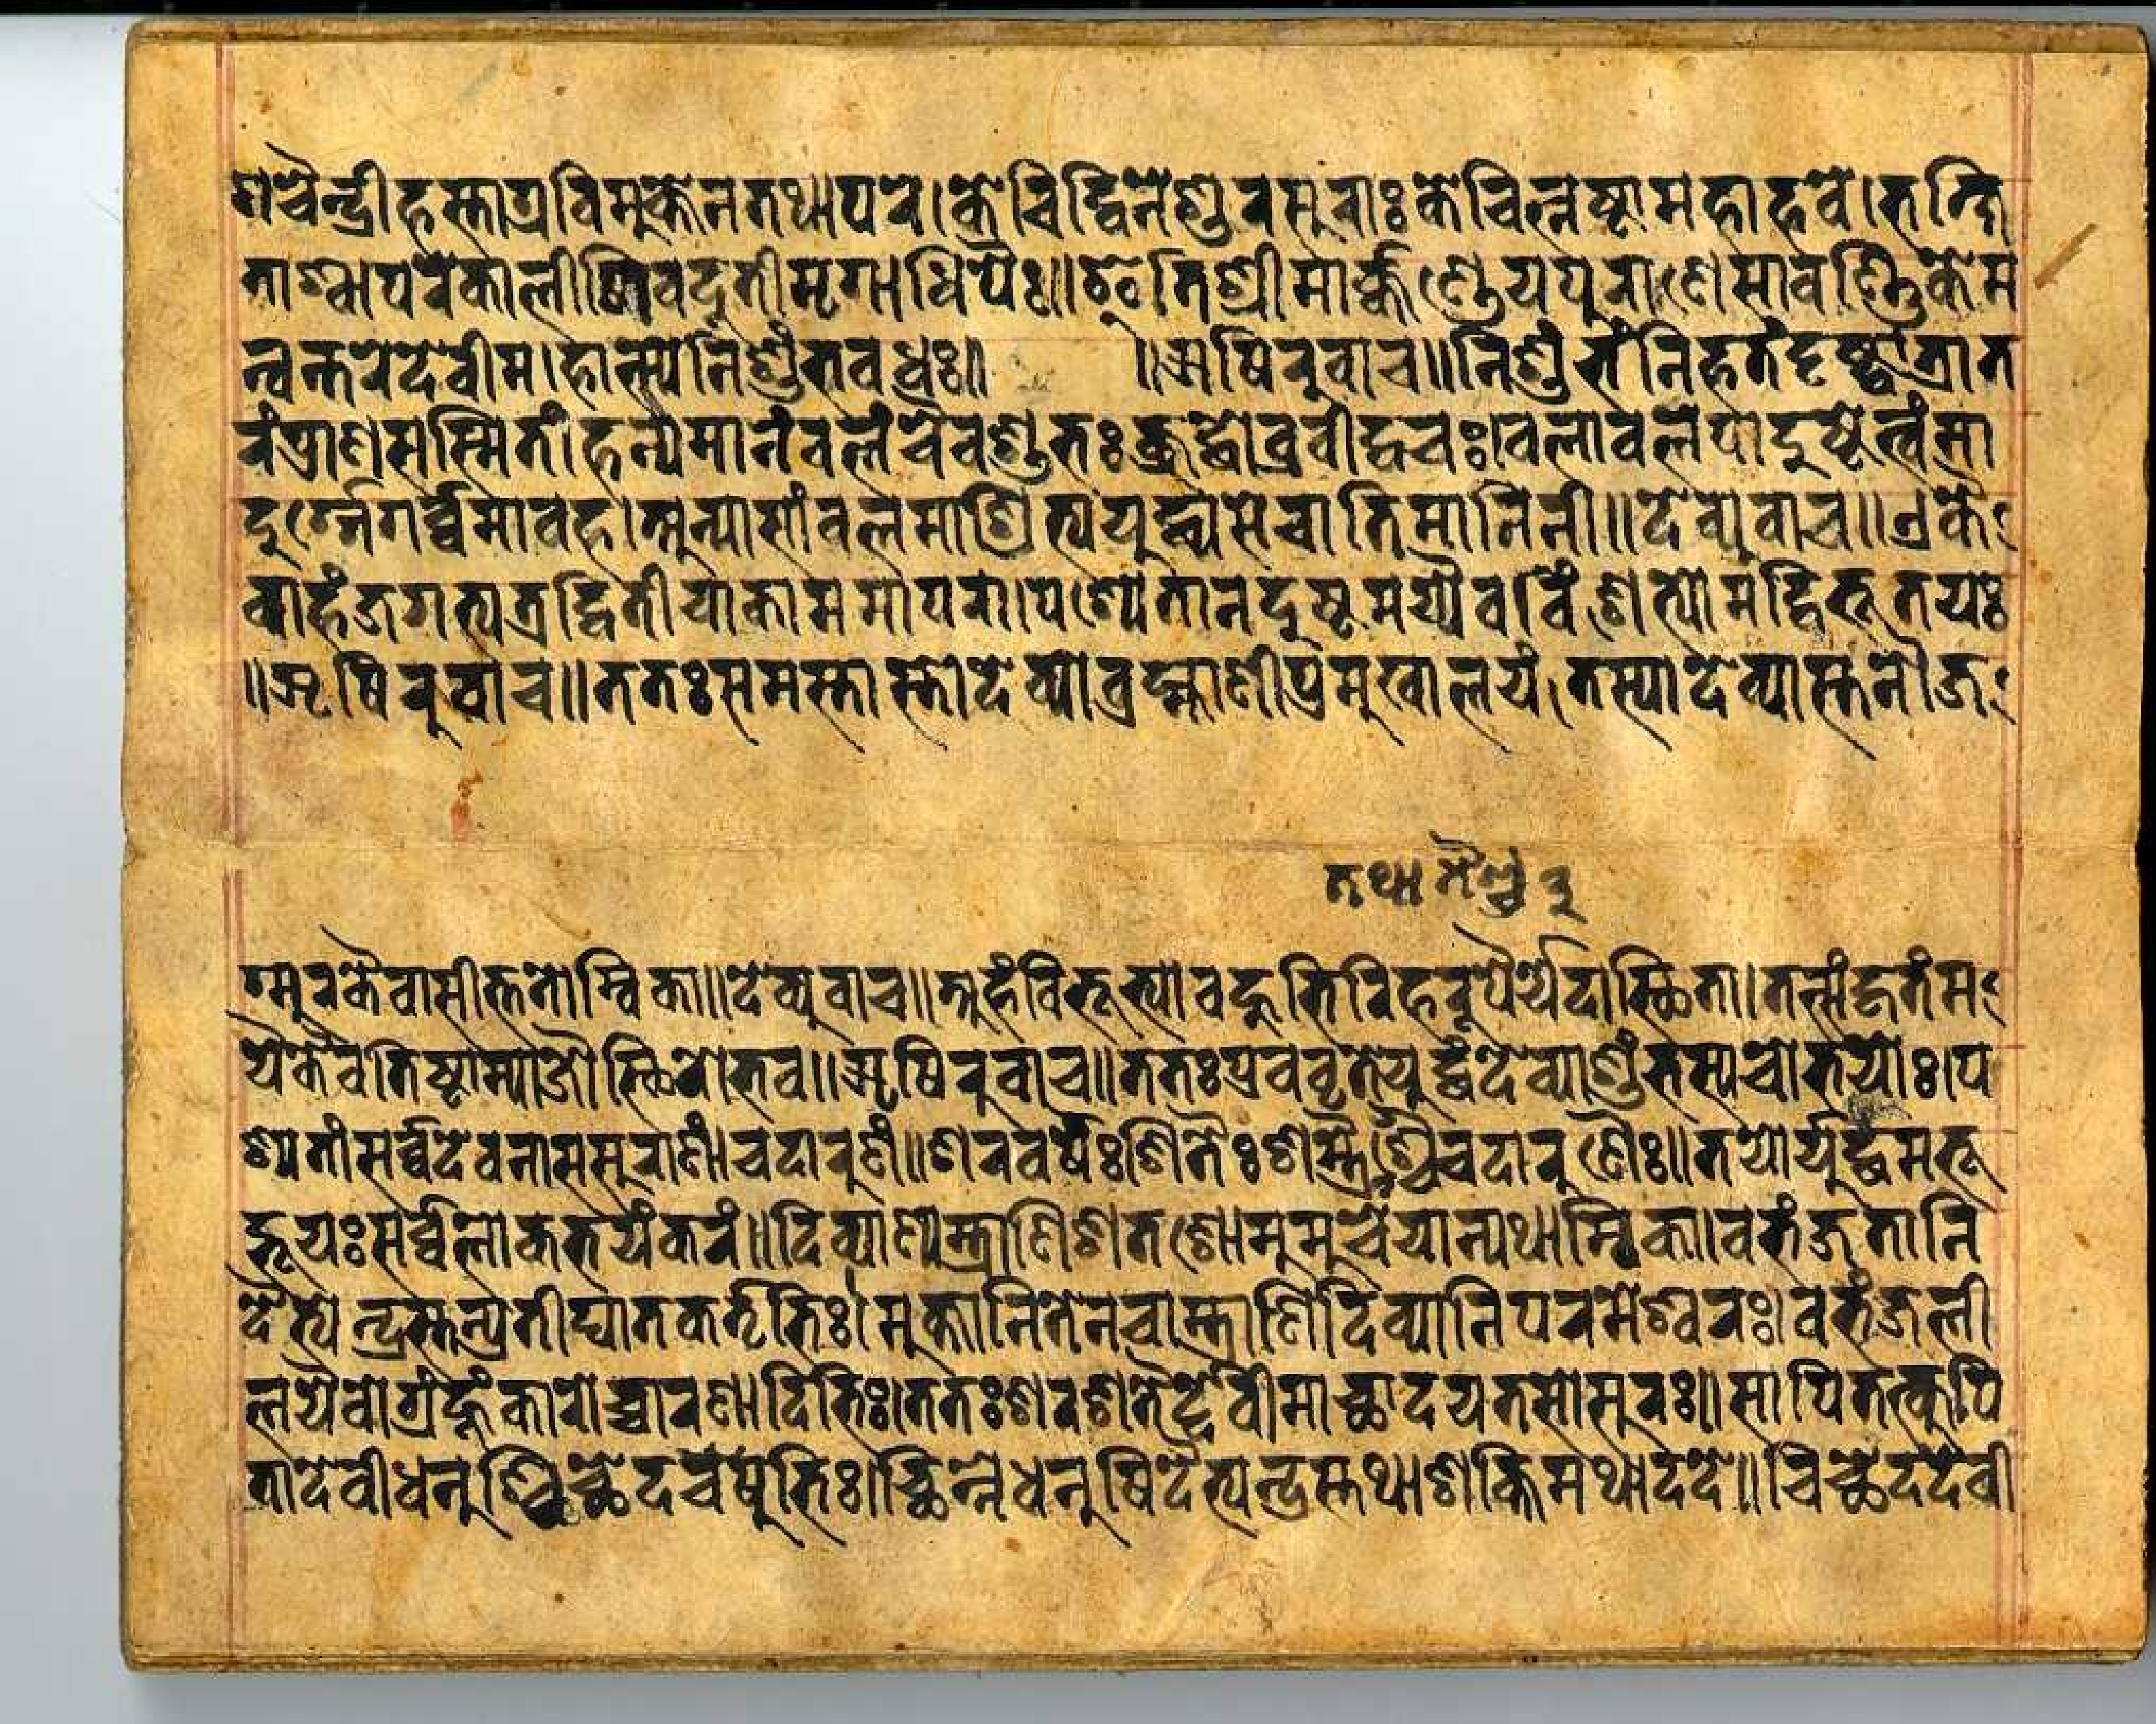 ण चैन्द्रीहस्ताग्रविमुक्तेन तथापरे। केचिद्विनेशुरसुराः केचिन्नष्टा महाहवे। भक्षि
ताश्चापरे काली शिवदूती मृगाधिपैः॥ इति श्रीमार्क्कण्डेयपुराणे सावर्ण्णिके म
न्वन्तरे देवीमाहात्म्ये निशुंभवधः॥ ॥ऋषिरुवाच॥ निशुंभं निहतं दृष्ट्वा भ्रात
रं प्राणसस्मितं। हन्यमानं बलं चैव शुभः क्रुद्धोब्रवीद्वचः। वलावलेपादुष्टे त्वं मा
दुर्ग्गे गर्व्वमावह। अन्यासां वलमाश्रित्य युद्ध्यसे चातिमानिनी॥ देव्युवाच॥ एकै
वाहं जगत्यत्र द्वितीया का ममापरा। पश्येतान दुष्ट मय्येव विंशत्यो मद्विभूतयः
॥ऋषिरुवाच॥ ततः समस्तास्तो देव्यो ब्रह्माणीप्रमुखालयं। तस्या देव्यास्तनौ ज
ग्मुरकैवासीत्ततोम्बिका॥ देव्युवाच॥ अहं विभूत्या वहुभिरिह रूपैर्य्यदास्थिता। तत्संहृतं म
यैकैव तिष्टाम्याजौ स्थिरो भव॥ ऋषिरुवाच॥ ततः प्रववृते युद्धं देव्या शुंभस्य चोभयोः। प
श्यतां सर्व्वदेवनामसुराणां च दारुणं॥ शरवर्षैः शितैः शस्त्रैश्चैव दारुणैः॥ तयोर्युद्धमभू
द्भूयः सर्व्वलोकभयंकरं॥ दिव्याण्यस्त्राणि शतशो मुमुचे यान्यथाम्बिका। वभंज तानि
दैत्येन्द्रस्तत्प्रतीघातकर्तृभिः। मुक्तानि तेन चास्त्राणि दिव्यानि परमेश्वरः। वभंज ली
लयैवोग्रहूंकारोच्चारणादिभिः। ततः शरशतैर्द्देवीमाच्छादयत सोसुरः॥ सापि तत्कुपि
ता देवी धनुश्चिच्छेद चेषुभिः। च्छिन्ने धनुषि दैत्यन्द्रस्तथा शक्तिमथाददे॥ चिच्छेद देवी